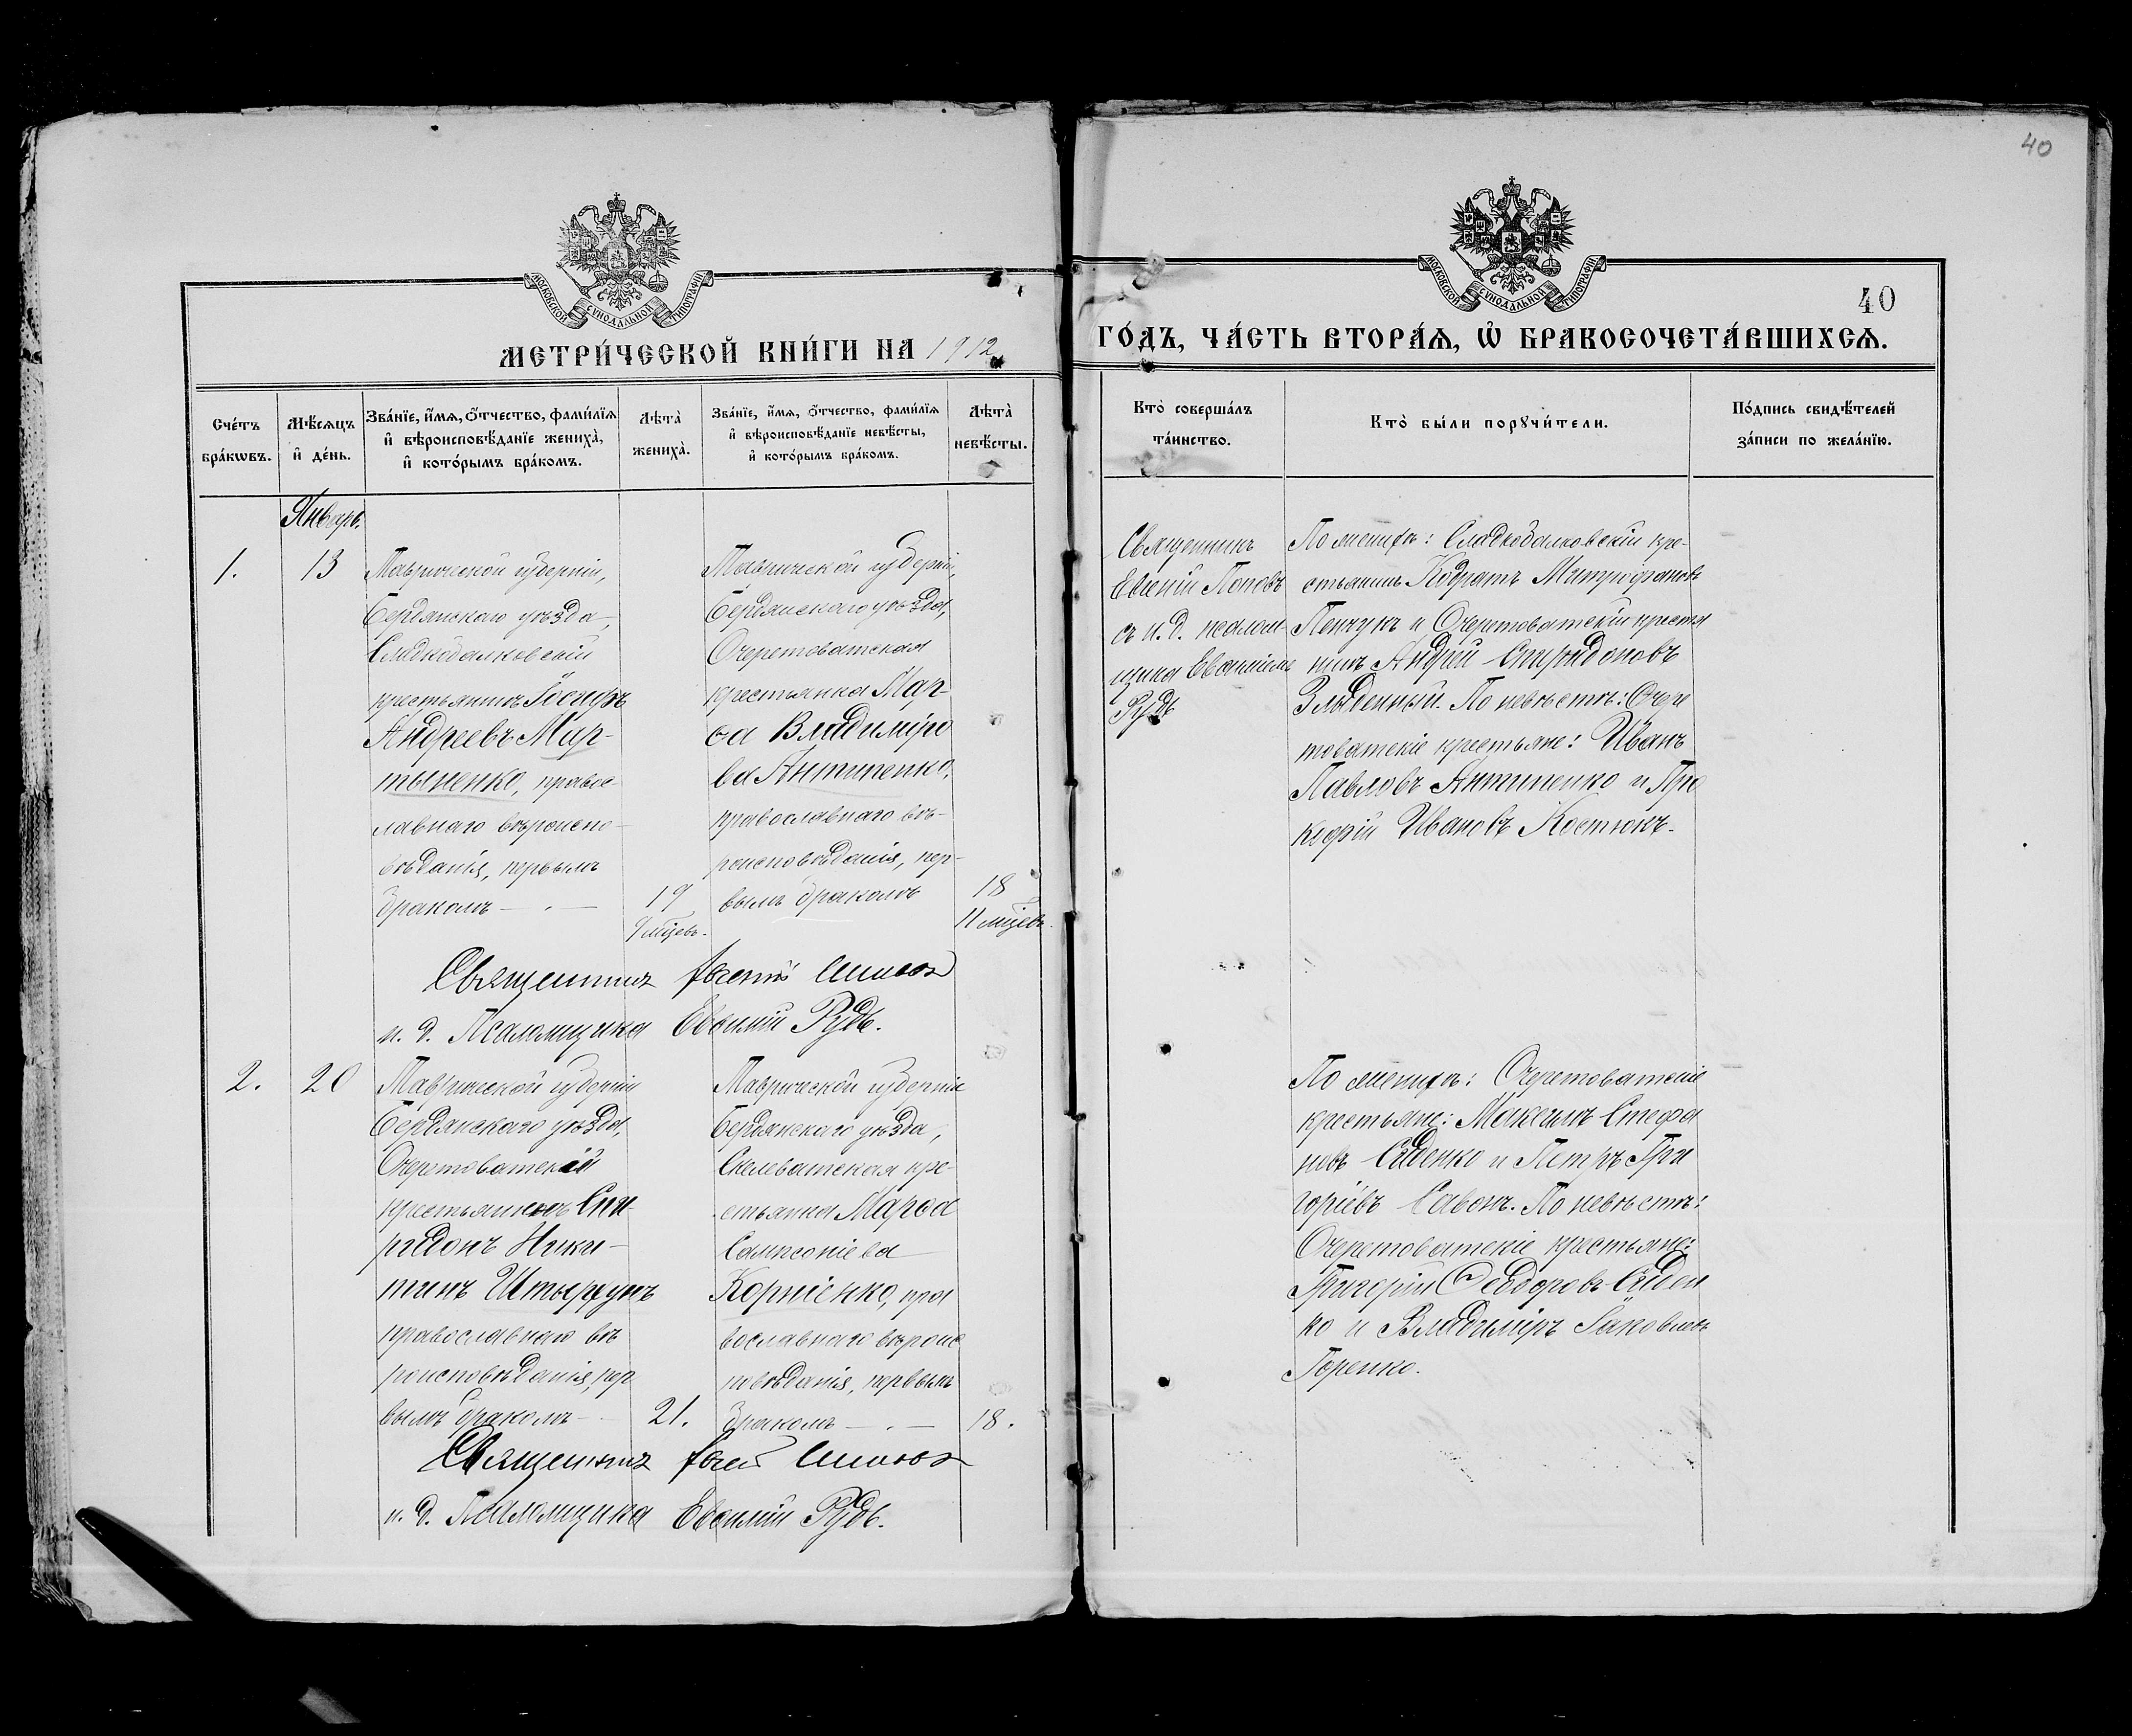 40
МОСКОВСКОЙ СУНОДАЛЬНОЙ ТИПОГРАФІИ
МОСКОВСКОЙ СУНОДАЛЬНОЙ ТИПОГРАФІИ
40
МЕТРИ́ЧЕСКОЙ КНИ́ГИ НА 1912
ГО́ДЪ, ЧА́СТЬ ВТОРА́Ѧ, Ѽ БРАКОСОЧЕТА́ВШИХСѦ.
Сче́тъ
бра́кѡвъ.
Мѣ́сѧцъ
и҆ де́нь.
Зва́нїе, и҆́мѧ, ѻ҆́тчество, фами́лїѧ
и҆ вѣроисповѣ́данїе жениха̀,
и҆ кото́рымъ бра́комъ.
Лѣ́та̀
жениха̀.
Зва́нїе, и҆́мѧ, ѻ҆́тчество, фами́лїѧ
и҆ вѣроисповѣ́данїе невѣ́сты,
и҆ кото́рымъ бра́комъ.
Лѣ́та̀
невѣ́сты.
Кто̀ соверша́лъ
та́инство.
Кто̀ бы́ли порꙋчи́тели.
По́дпись свидѣ́телей
за́писи по жела́нїю.
Январь.
1.
13
Таврической губерніи,
Бердянскаго уѣзда,
Сладкобалковскій
крестьянинъ Іосифъ
Андреевъ Мар-
тыненко, правос-
лавнаго вѣроиспо-
вѣданія, первымъ
бракомъ
19
9 мцевъ.
Таврической губерніи,
Бердянскаго уѣзда,
Очеретоватская
крестьянка Мар-
ѳа Владимiро
ва Антипенко,
православнаго вѣ-
роисповѣданія, пер-
вымъ бракомъ
18
11 мцевъ.
Священникъ
Евгеній Поповъ
съ и.д. псалом-
щика Евѳиміемъ
Рудь
По женихѣ: Сладкобалковскій кре-
стьянинъ Кодратъ Митрофановъ
Пенчукъ и Очеретоватскій крестья
нинъ Андрей Спиридоновъ
Злыденный. По невѣстѣ: Очере
товатскіе крестьяне: Иванъ
Павловъ Антипенко и Про
кофій Ивановъ Костюкъ.
Священникъ Евгеній Поповъ
и. д. Псаломщика Евѳимій Рудь.
2.
20
Таврической губерніи
Бердянскаго уѣзда,
Очеретоватскій
крестьянинъ Спи
ридонъ Ники-
тинъ
православнаго вѣ
роисповѣданія, пер
вымъ бракомъ
21.
Таврической губерніи
Бердянскаго уѣзда,
Скелеватская кре-
стьянка Марѳа
Сампсоніева
Корніенко, пра
вославнаго вѣроис
повѣданія, первымъ
бракомъ
18.
По женихѣ: Очеретоватскіе
крестьяне: Максимъ Стефа
новъ Сиденко и Петръ Гри
горіевъ Савонъ. По невѣстѣ:
Очеретоватскіе крестьяне:
Григорій Ѳеодоровъ Сиден
ко и Владиміръ Іаковлевъ
Горенко.
Священникъ Евгеній Поповъ
и. д. Псаломщика Евѳимій Рудь.